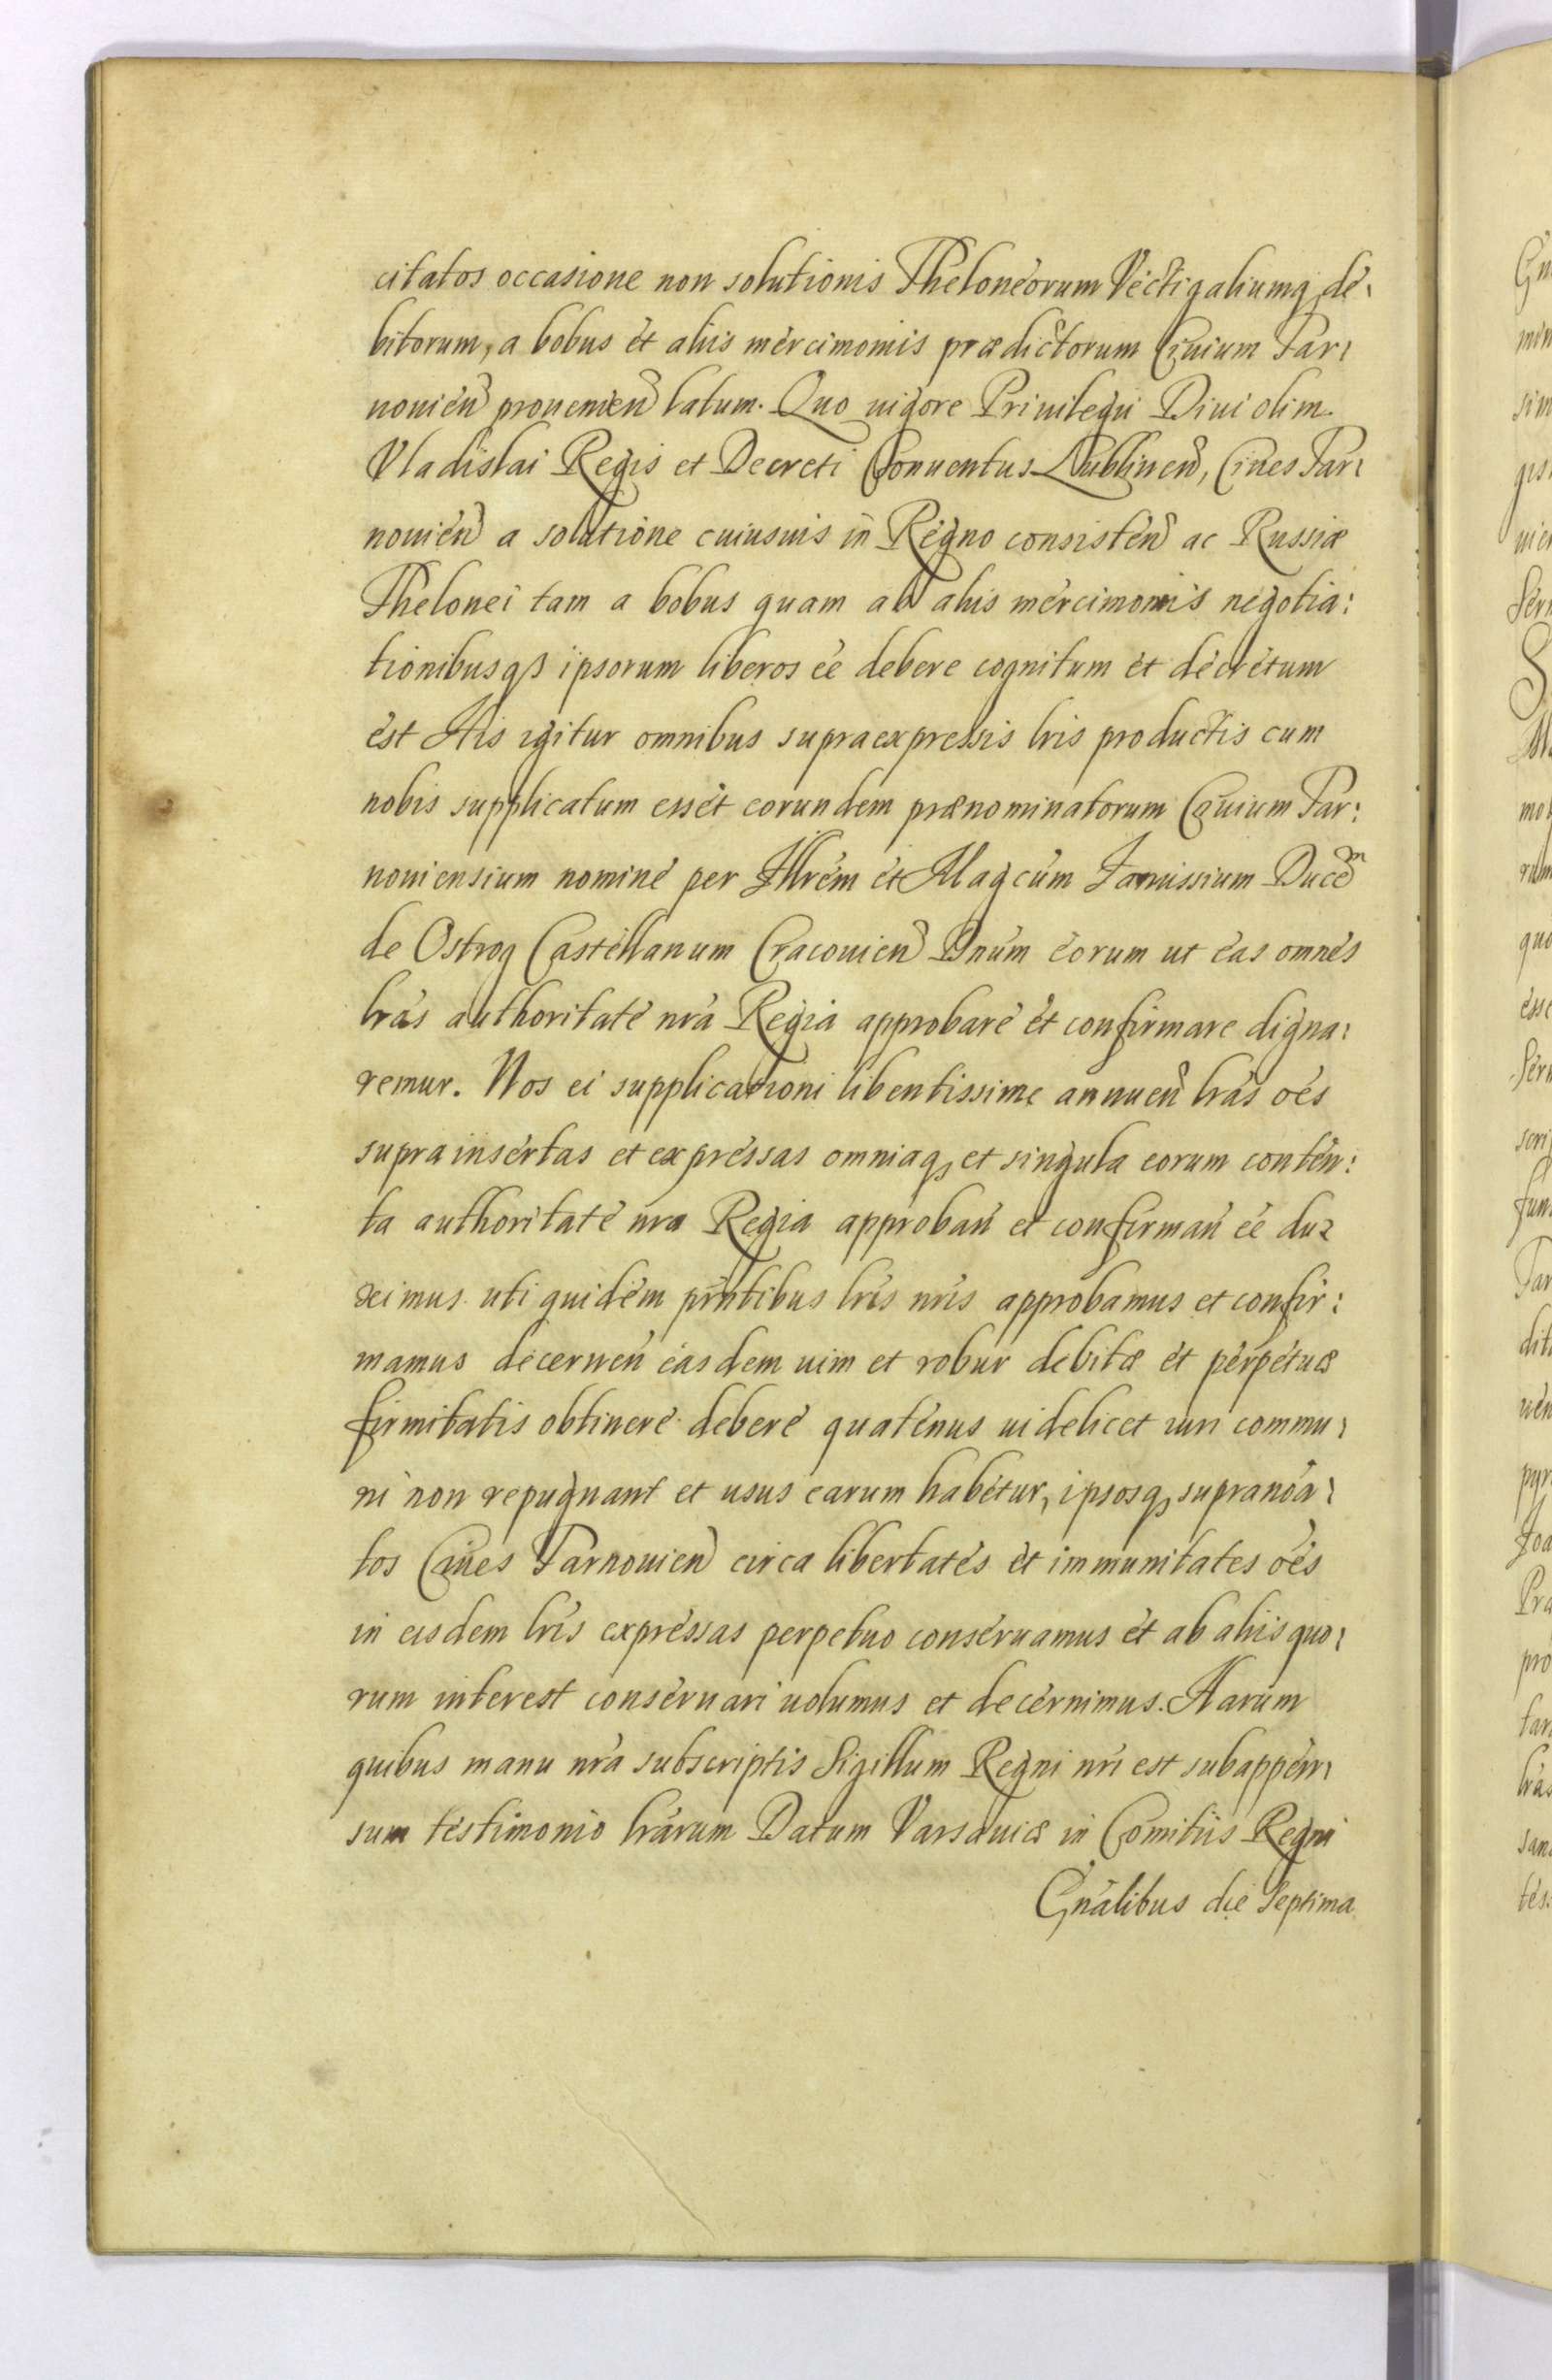 citatos occasione non solutionis Theloneorum Vectigaliumq₃ de¬
bitorum, a bobus et aliis mercimoniis prædictorum Ciuium Tar¬
nouien̄ prouenien̄ latum. Quo uigore Priuilegii Diui olim
Vladislai Regis et Decreti Conuentus Lublinen̄, Ciues Tar¬
nouien̄ a solutione cuiusuis in Regno consisten̄ ac Russiæ
Thelonei tam a bobus quam ab aliis mercimoniis negotia:
tionibusq₃ ipsorum liberos ēe debere cognitum et decretum
est His igitur omnibus supraexpressis lris productis cum
nobis supplicatum esset eorundem prænominatorum Ciuium Tar:
nouiensium nomine per Illrem et Magcum Janussium Ducē
de Ostrog Castellanum Cracouien̄ Dnum eorum ut eas omnes
lras authoritate nra Regia approbare et confirmare digna¬
remur. Nos ei supplicationi libentissime annuen̄ lras oēs
supra insertas et expressas omniaq₃ et singula eorum conten:
ta authoritate nra Regia approban̄ et confirman̄ ēe du¬
ximus uti quidem pn̄tibus lris nris approbamus et confir:
mamus decernen̄ easdem uim et robur debitæ et perpetuæ
firmitatis obtinere debere quatenus uidelicet iuri commu¬
ni non repugnant et usus earum habetur, ipsosq₃ supranoa¬
tos Ciues Tarnouien̄ circa libertates et immunitates oēs
in eisdem lris expressas perpetuo conseruamus et ab aliis quo¬
rum interest conseruari uolumus et decernimus. Harum
quibus manu nra subscriptis Sigillum Regni nri est subappen¬
sum testimonio lrarum Datum Varsauiæ in Comitiis Regni
Gnalibus die Septima